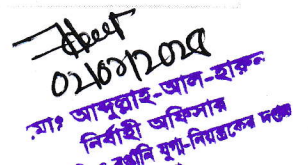 02/09/2025
মোঃ আব্দুল্লাহ-আল-হারুন
নির্বাহী অফিসার
রপ্তানি যুগ্ম-নিয়ন্ত্রকের দপ্তর